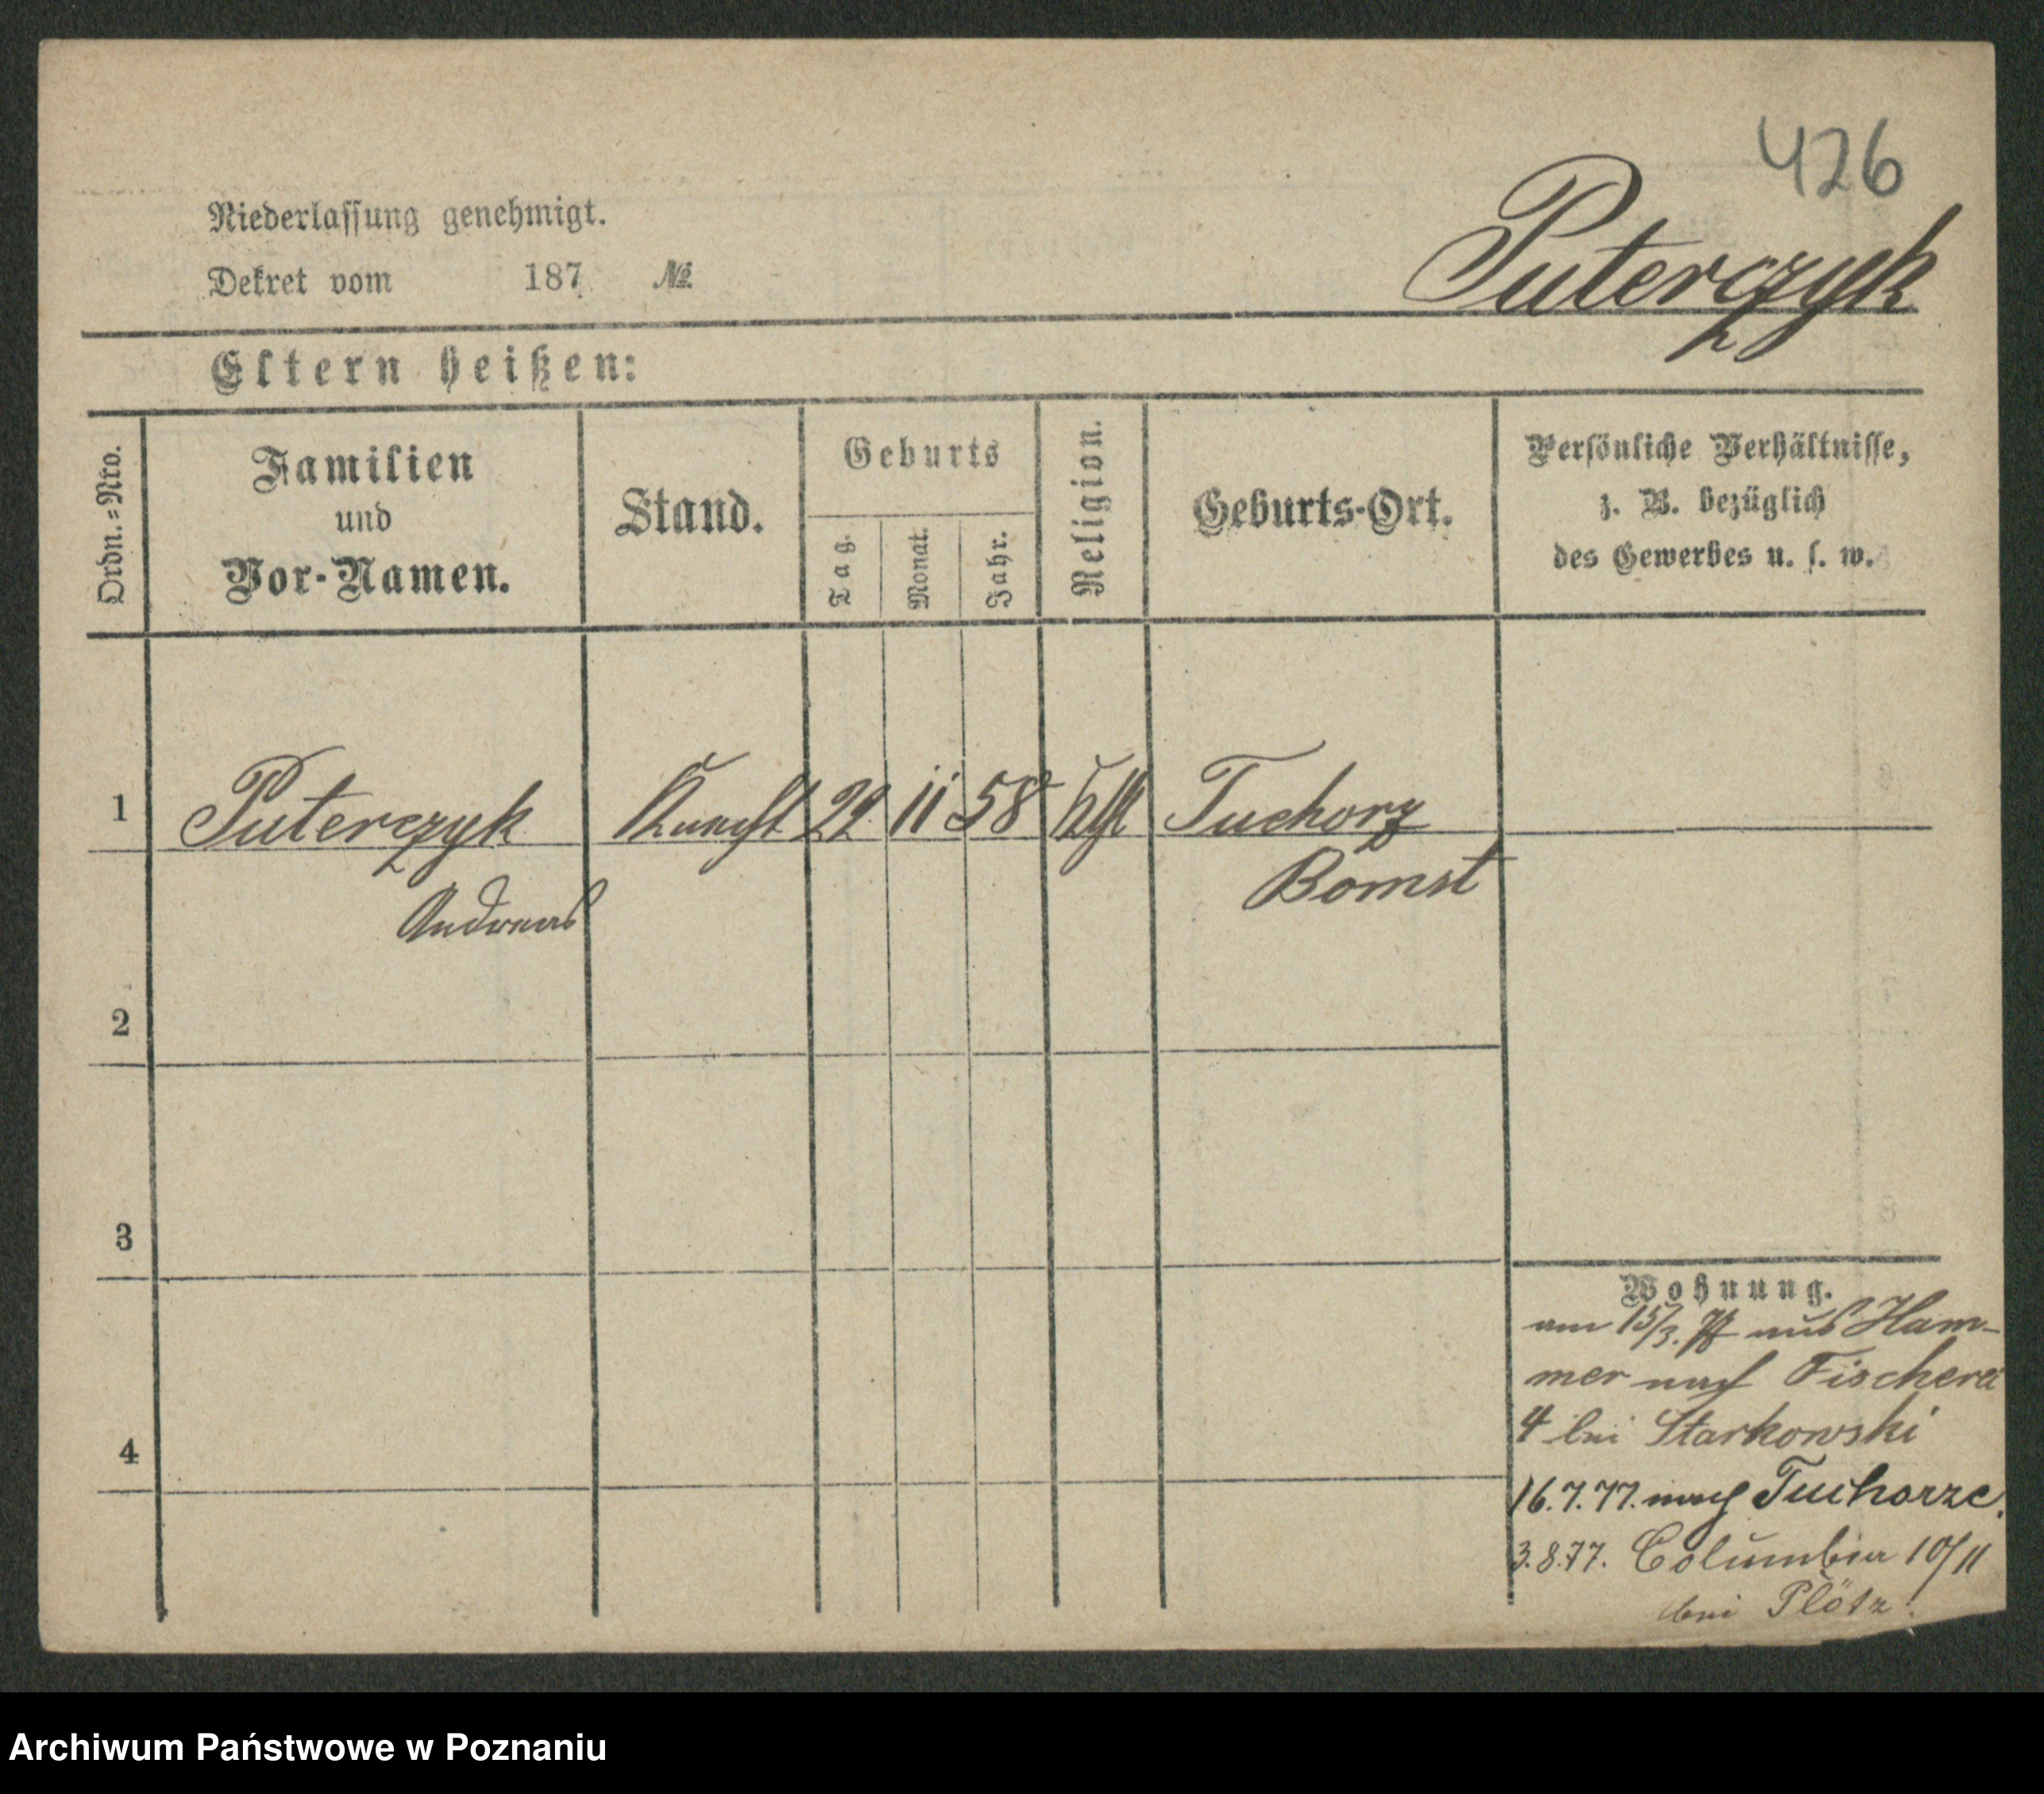 426
Puterczyk
Niederlassung genehmigt.
Dekret vom 187 №
Eltern heißen:
Ordn.=Nro.
Familien
und
Vor-Namen.
Stand.
Geburts
Tag.
Monat.
Jahr.
Religion.
Geburts-Ort.
Persönliche Verhältnisse,
z. B. bezüglich
des Gewerbes u. s. w.
1 Puterczyk Knecht 22 11 58 Tuchorz
Andreas Bomst
2
3
4
Wohnung.
am 15/3. aus Ham-
mer nach Fischerei
4 bei Starkowski
16.7.77. nach Tuchorze.
3.8.77. Columbia 10/11
bei Plötz.
Archiwum Państwowe w Poznaniu